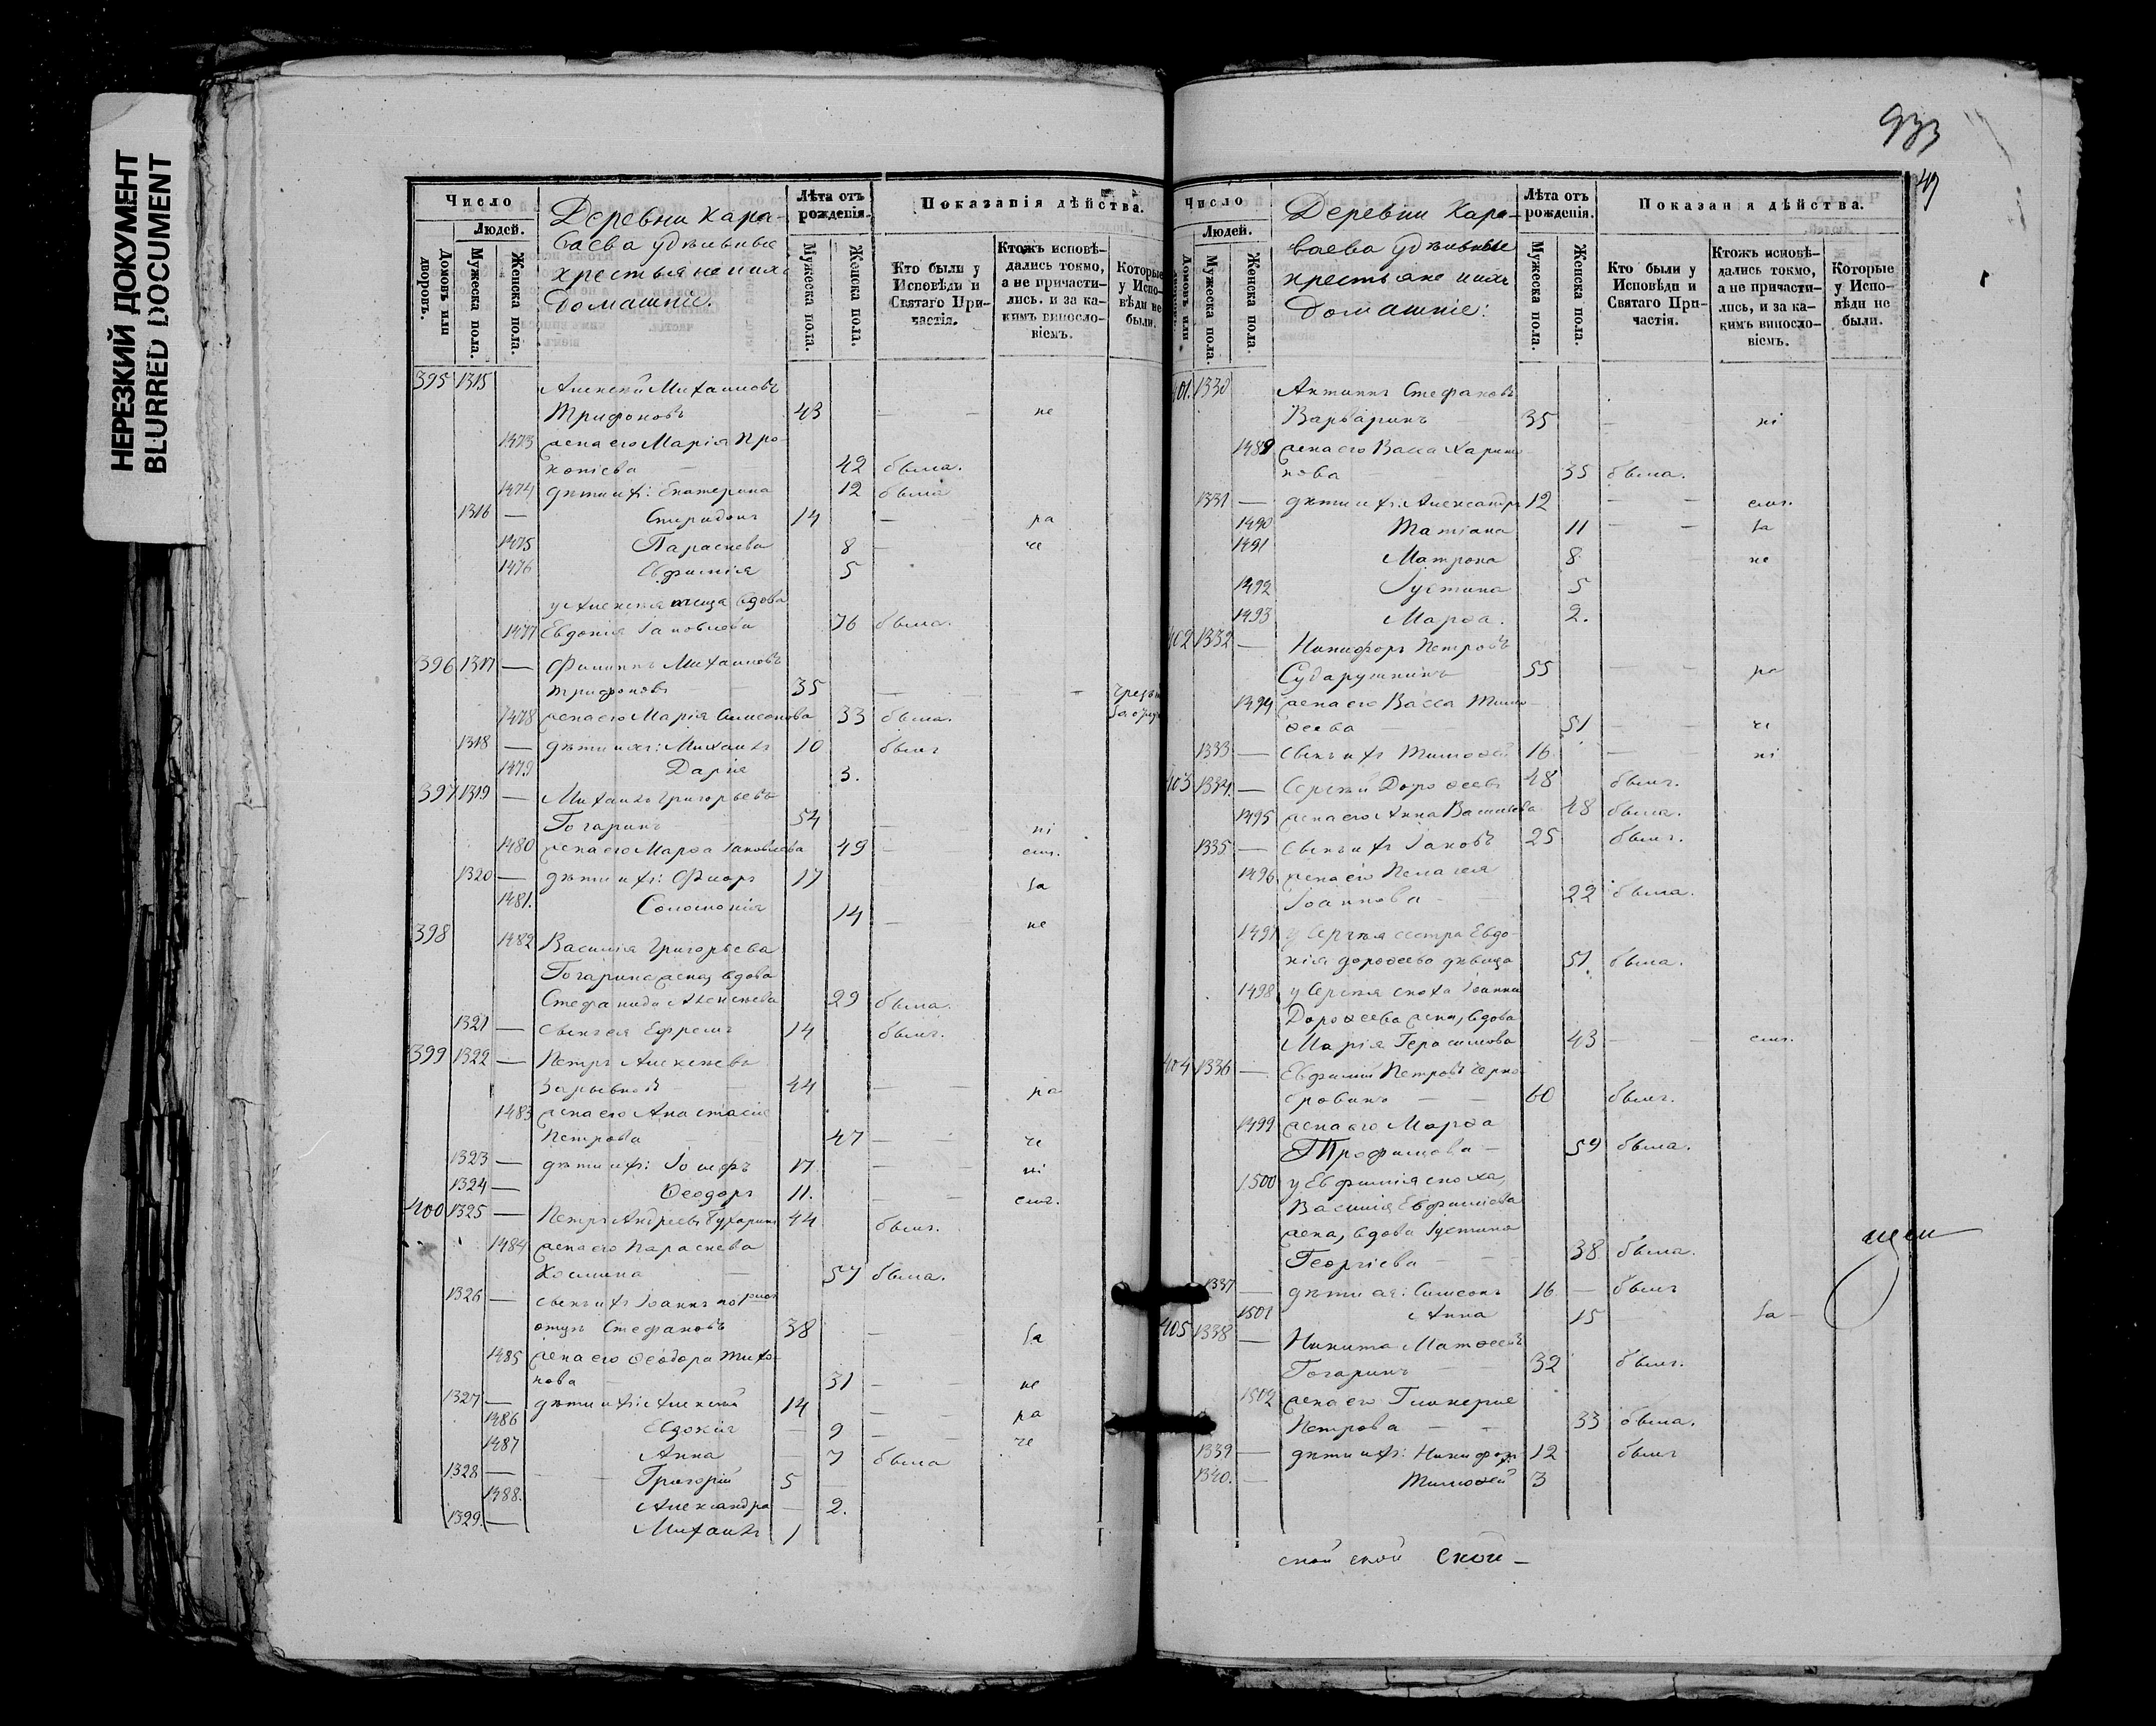 НЕРЕЗКИЙ ДОКУМЕНТ
BLURRED DOCUMENT
933
49
Число
Людей.
Домовъ или дворовъ.
Мужеска пола.
Женска пола.
Деревни Кара-
баева удѣльные
крестьяне и ихъ
домашніе.
Лѣта отъ рожденія.
Мужеска пола.
Женска пола.
Показанія дѣйства.
Кто были у Исповѣди и Святаго Причастія.
Ктожъ исповѣдались токмо, а не причастились. и за какимъ винословіемъ.
Которые у Исповѣди не были.
395 1315 Алексѣй Михаиловъ
Трифоновъ 43 — — не
1473 жена его Марія Про-
копіева — 42 была.
1474 дѣти ихъ: Екатерина 12 была
1316 — Спиридонъ 14 — — ра
1475 Параскева 8 — че
1476 Евфимія 5
у Алексѣя вдова
1477 Евдокія Іаковлева 76 была.
396 1317 — Филиппъ Михаиловъ
Трифоновъ — 35 — — —
1478 жена его Марія Симеонова 33 была.
1318 — дѣти ихъ: Михаилъ 10 былъ
1479 Дарія 3.
397 1319 — Михаилъ Григорьевъ
Гогаринъ 54 — ні
1480 жена его Марѳа Іаковлева 49 — емъ.
1320 — дѣти ихъ: Флоръ 17 за
1481. Соломонія 14 — не
398 1482 Василія Григорьева
Гогарина жена, вдова
Стефанида Алексѣева 29 была.
1321 — сынъ ея Ефремъ 14 былъ.
399 1322 — Петръ Алексѣевъ
Зарывной — 44 — — ра
1483 жена его Анастасія
Петрова — 47 — — че
1323 — дѣти ихъ: Іосифъ 17. — ні
1324 — Ѳеодоръ 11. — — емъ.
400 1325 — Петръ Андреевъ Бухаринъ 44 былъ.
1484 жена его Параскева
Косьмина — 57 была.
1326 — сынъ ихъ Іоаннъ по
отцѣ Стефановъ 38 — за
1485 жена его Ѳеодора Тихо-
нова — 31 — — не
1327 — дѣти ихъ: Алексій 14 — — ра
1486 Евдокія — 9 — — че
1487 Анна — 7 была
1328 — — — Григорій 5
1488. Александра — 2.
1329. — Михаилъ 1
Число
Людей.
Домовъ или
Мужеска пола.
Женска пола.
Деревни Кара-
баева удѣльные
крестьяне и ихъ
домашніе:
Лѣта отъ рожденія.
Мужеска пола.
Женска пола.
Показанія дѣйства.
Кто были у Исповѣди и Святаго Причастія.
Ктожъ исповѣдались токмо, а не причастились, и за какимъ винословіемъ.
Которые у Исповѣди не были.
401. 1330 Антипъ Стефановъ
Варваринъ — 35 — — ні
1489 жена его Васса Харито-
нова — 35 была.
1331 — дѣти ихъ: Александръ 12 — — емъ.
1490 Татіана 11 — — за
1491 Матрона 8 — не
1492 Іустина 5
1493 Марѳа. 2.
402 1332 — Никифоръ Петровъ
Сударушкинъ 55 — — ра
1494 жена его Васса Тимо-
ѳеева — 51 — че
1333 — сынъ ихъ Тимоѳей 16 — ні
403 1334. — Сергѣй Дороѳеевъ 48 былъ.
1495 жена его Анна Васильева 48 была.
1335 — сынъ ихъ Іаковъ 25 былъ.
1496 жена его Пелагея
Іоаннова — 22 была.
1497 у Сергѣя сестра Евдо-
кія Дороѳеева дѣвица 51. была.
1498 у Сергѣя сноха Іоанна
Дороѳеева жена, вдова
Марія Герасимова 43 — — емъ.
404 1336 — Евфимій Петровъ Черно-
бровинъ — — 60 былъ.
1499 жена его Марѳа
Трофимова — 59 была.
1500 у Евфимія сноха,
Василія Евфиміева
жена, вдова Іустина
Георгіева — — 38 была.
1337 — дѣти ея: Симеонъ 16 — былъ
1501 Анна 15 — за —
405 1338 — Никита Матѳеевъ
Гогаринъ — 32 былъ.
1502 жена его Гликерія
Петрова — — 33 была.
1339 — дѣти ихъ: Никифоръ 12 былъ
1340. — Тимоѳей 3
ской ской Ской —